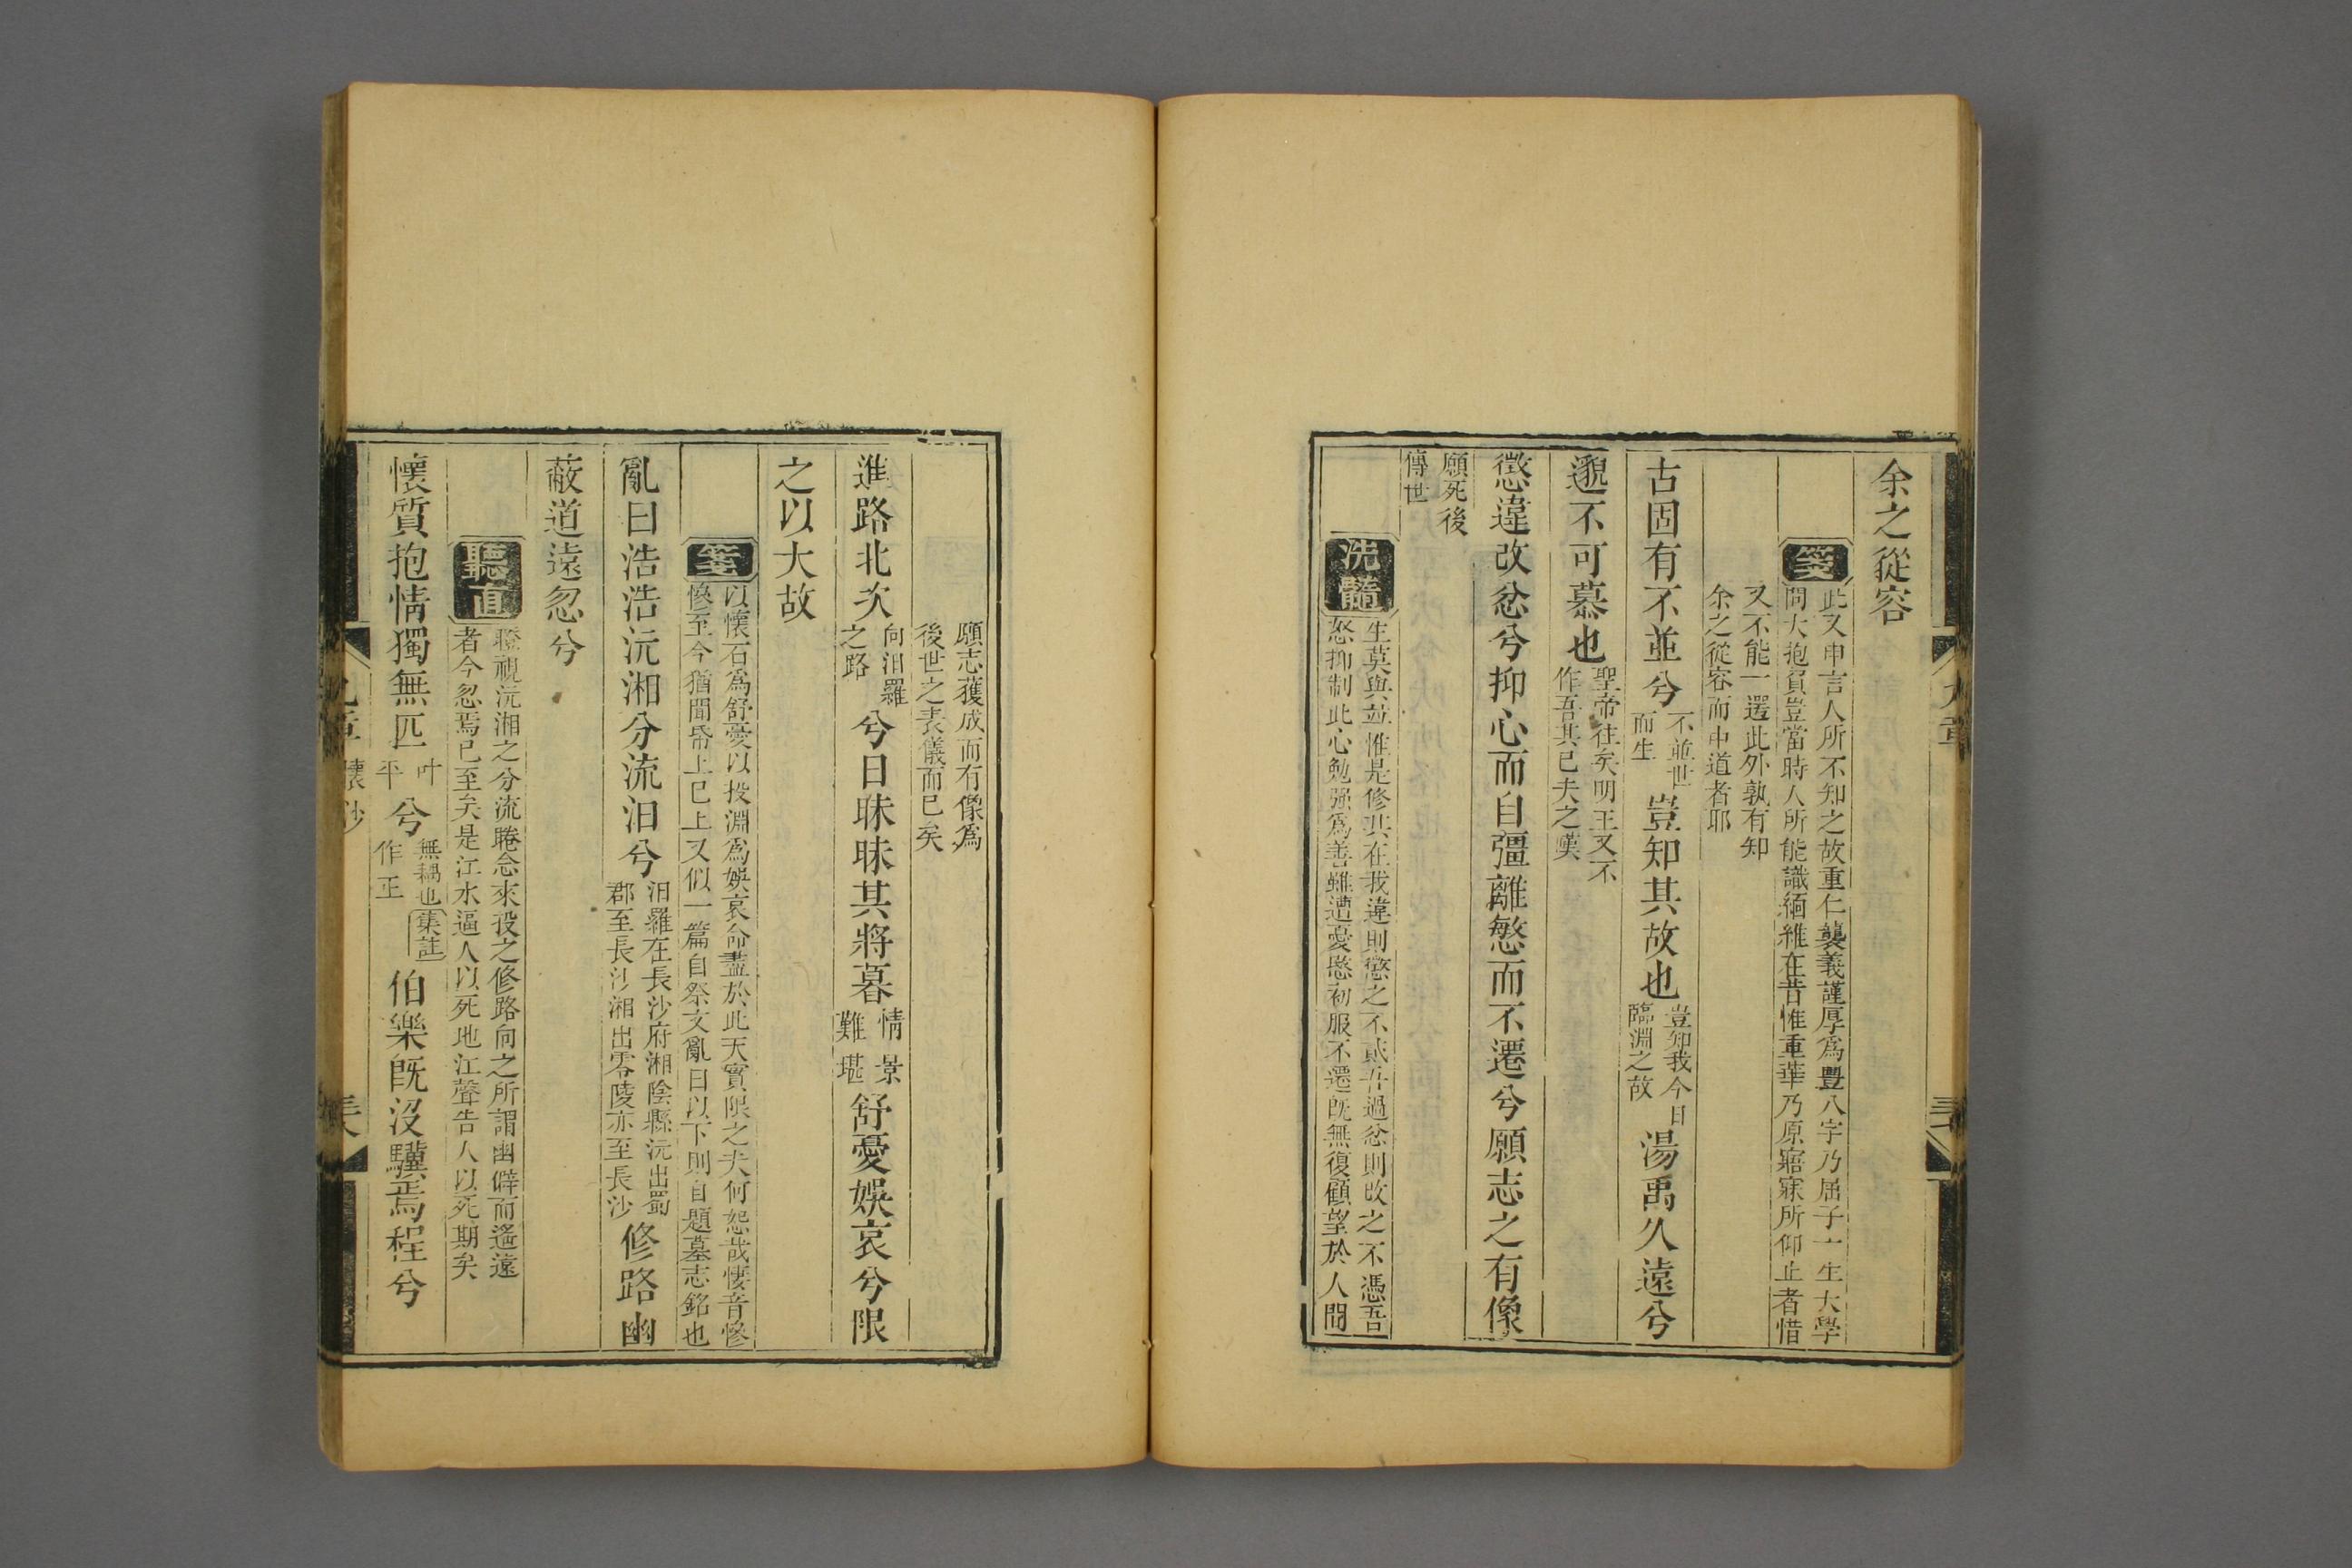 余之從容
箋
此又申言人所不知之故重仁襲義謹厚為豐八字乃屈子一生大學
問大抱負豈當時人所能識緬維在昔惟重華乃原寤寐所仰止者惜
又不能一遌此外孰有知
余之從容而中道者耶
古固有不並兮
不並世
而生
豈知其故也
豈知我今日
臨淵之故
湯禹久遠兮
邈不可慕也
聖帝往矣明王又不
作吾其已夫之嘆
懲違改忿兮抑心而自彊離慜而不遷兮願志之有像
願死後
傳世
洗髓
生莫與並惟是修其在我違則懲之不貳吾過忿則改之不憑吾
怒抑制此心勉强為善雖遭憂愍初服不遷既無復顧望於人間
九章
願志獲成而有像為
後世之表儀而已矣
進路北次
向汨羅
之路
兮日昧昧其將暮
情景
難堪
舒憂娛哀兮限
之以大故
箋
以懷石為舒憂以投淵為娛哀命盡於此天實限之夫何恕哉悽音慘
慘至今猶聞帋上已上又似一篇自祭文亂曰以下則自題墓志銘也
亂曰浩浩沅湘分流汨兮
汨羅在長沙府湘陰縣沅出蜀
郡至長沙湘出零陵亦至長沙
修路幽
蔽道遠忽兮
聽直
瞪視沅湘之分流睠念來投之修路向之所謂幽僻而遙遠
者今忽焉已至矣是江水逼人以死地江聲告人以死期矣
懷質抱情獨無匹
叶
平
兮
無耦也集註
作正
伯樂既沒驥焉程兮
九章
懷沙